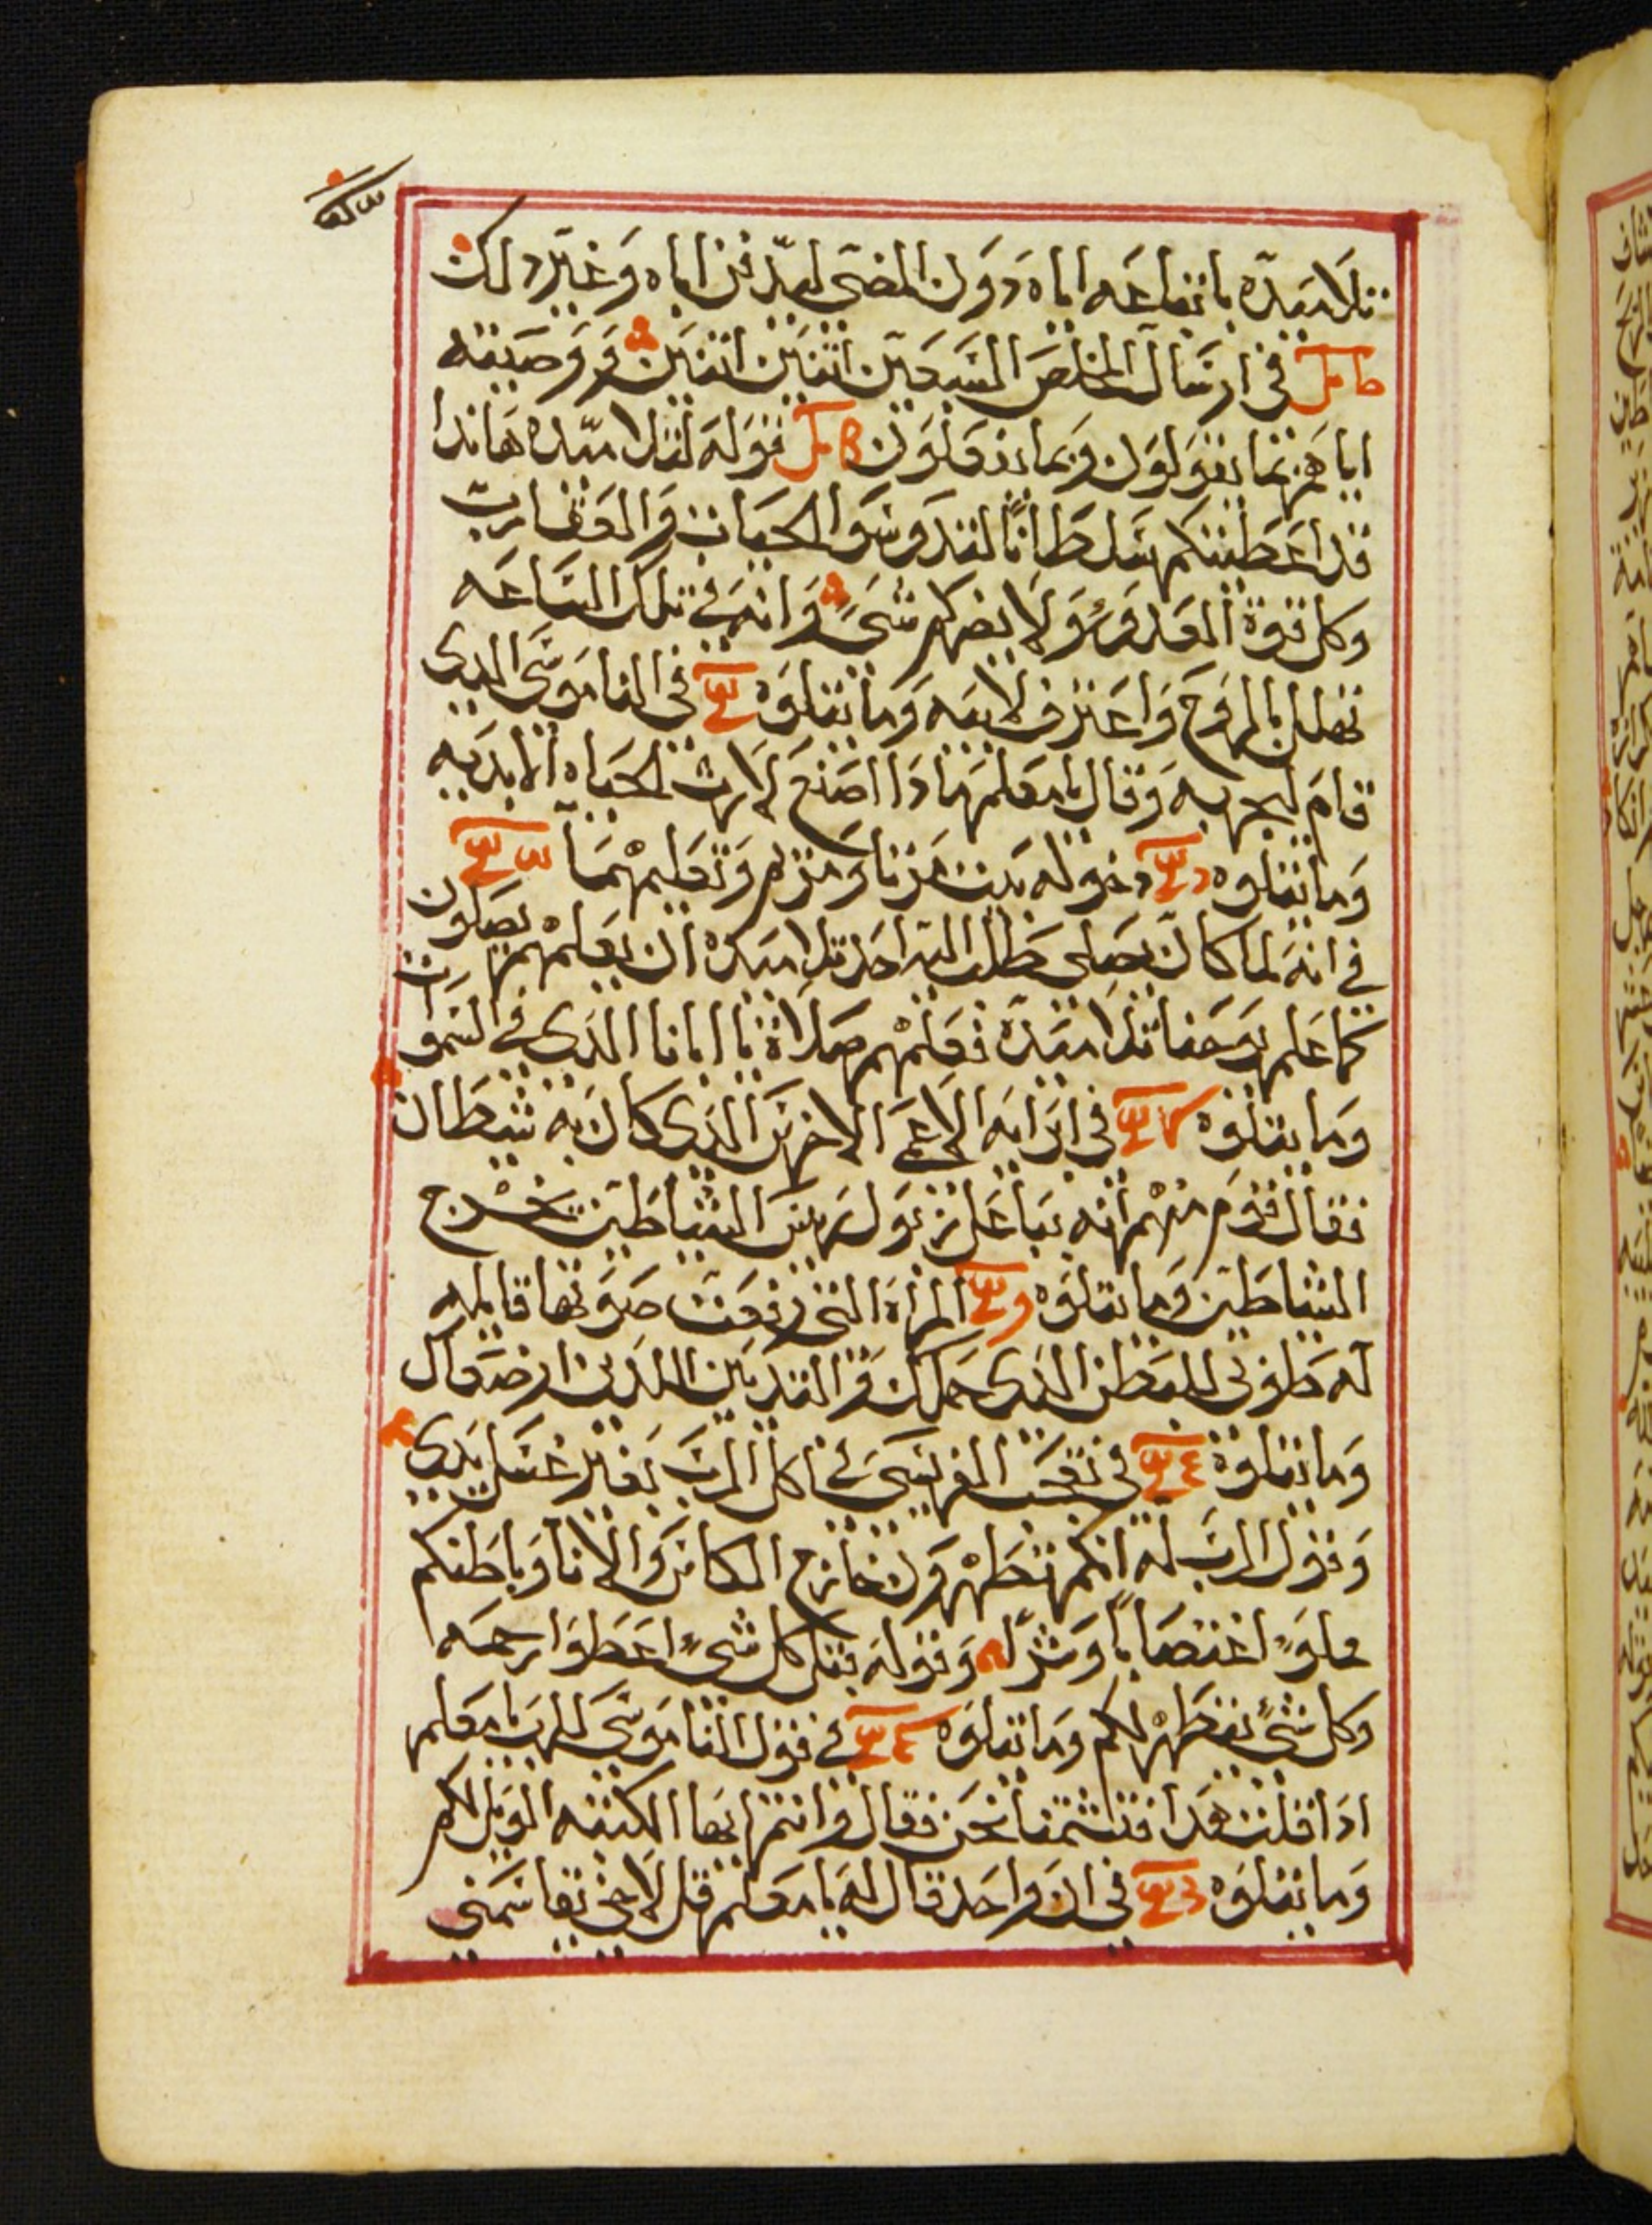 تلاميده باتباعه اياه دون المضي ليدفن اباه وغير دلك
في ارسال المخلص السبعين اتنين اتنين ووصيته
اياهم بما يقولون وبما يفعلون قوله لتلاميده هاندا
قد اعطيتكم سلطانًا لتدوسوا الحيات والعقارب
وكل قوة العدو ولا يضركم شي وانه في تلك الساعه
تهلل بالروح واعترف لابيه وما يتلوه في الناموسي الدي
قام ليجربه وقال يا معلم مادا اصنع لارث الحياه الابديه
وما يتلوه دخوله بيت مرتا ومريم وتعليمهما
في انه لما كان يصلي طلب اليه احد تلاميده ان يعلمهم يصلون
كما علم يوحنا تلاميده فعلمهم صلاة يا ابانا الدي في السموات
وما يتلوه في ابرايه الاعمى الاخرس الدي كان به شيطان
فقال قوم منهم انه بباعلزبول رييس الشياطين يخرج
الشياطين وما يتلوه المرأه التي رفعت صوتها قايله
له طوبى للبطن الدي حملك والتديين اللدين ارضعاك
وما يتلوه في تعجب الفريسي في اكل الرب بغير غسل يدي
وقول الرب له انكم تطهرون خارج الكاس والانا وباطنكم
مملوء اغتصابًا وشر وقوله بتل كل شيء اعطوا رحمه
وكل شيء يتطهر لكم وما يتلوه في قول الناموسي للرب يا معلم
ادا قلت هدا فتشتمنا نحن فقال وانتم ايها الكتبه الويل لكم
وما يتلوه في ان واحد قال له يا معلم قل لاخي يقاسمني